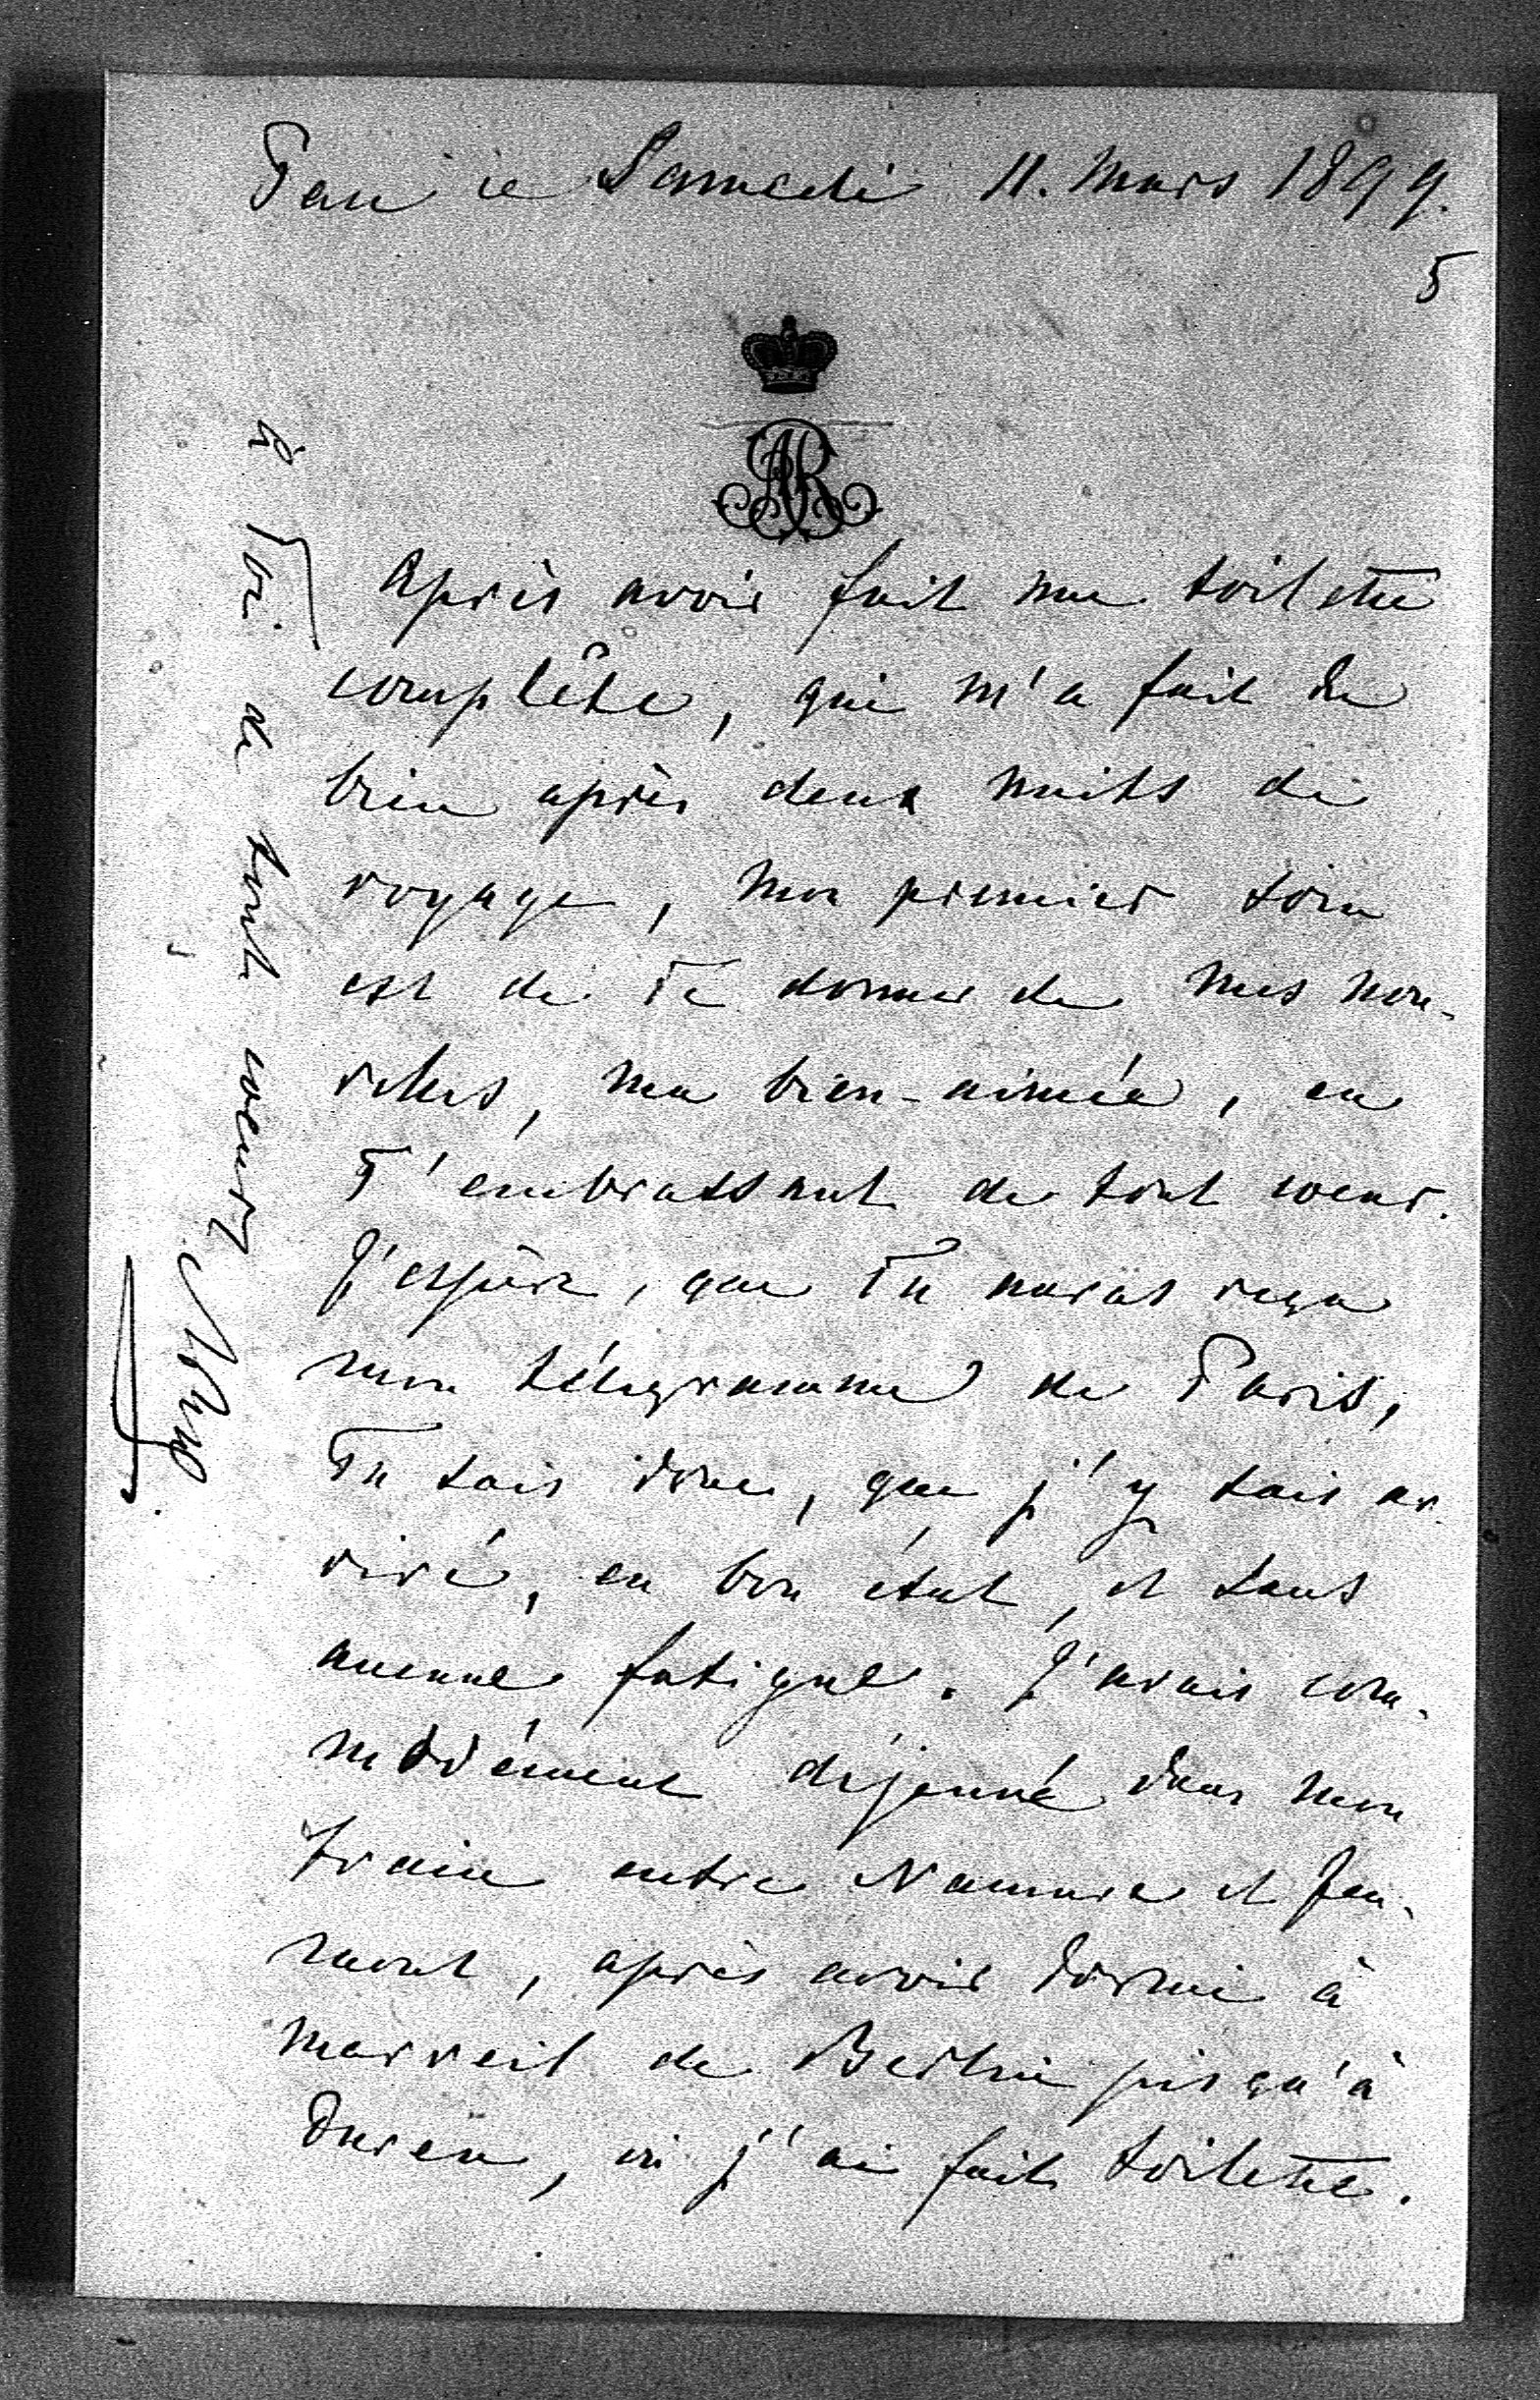 Pau ce Samedi 11. Mars 1899.
5
AR
Après avoir fait ma toilette
complête, qui m'a fait du
bien après deux nuits de
voyage, mon premier soin
est de Te donner de mes nou-
velles, ma bien-aimée, en
T'embrassant de tout coeur.
J'espère, que Tu auras reçu
mon télégramme de Paris,
Tu sais donc, que j'y suis ar-
rivé, en bon état, et sans
aucune fatigue. J'avais com-
modément déjeuné dans mon
train entre Namure et Jeu-
mont, après avoir dormi à
merveil de Berlin jusqu'à
Duren, où j'ai fait toilette.
à Toi de tout coeur